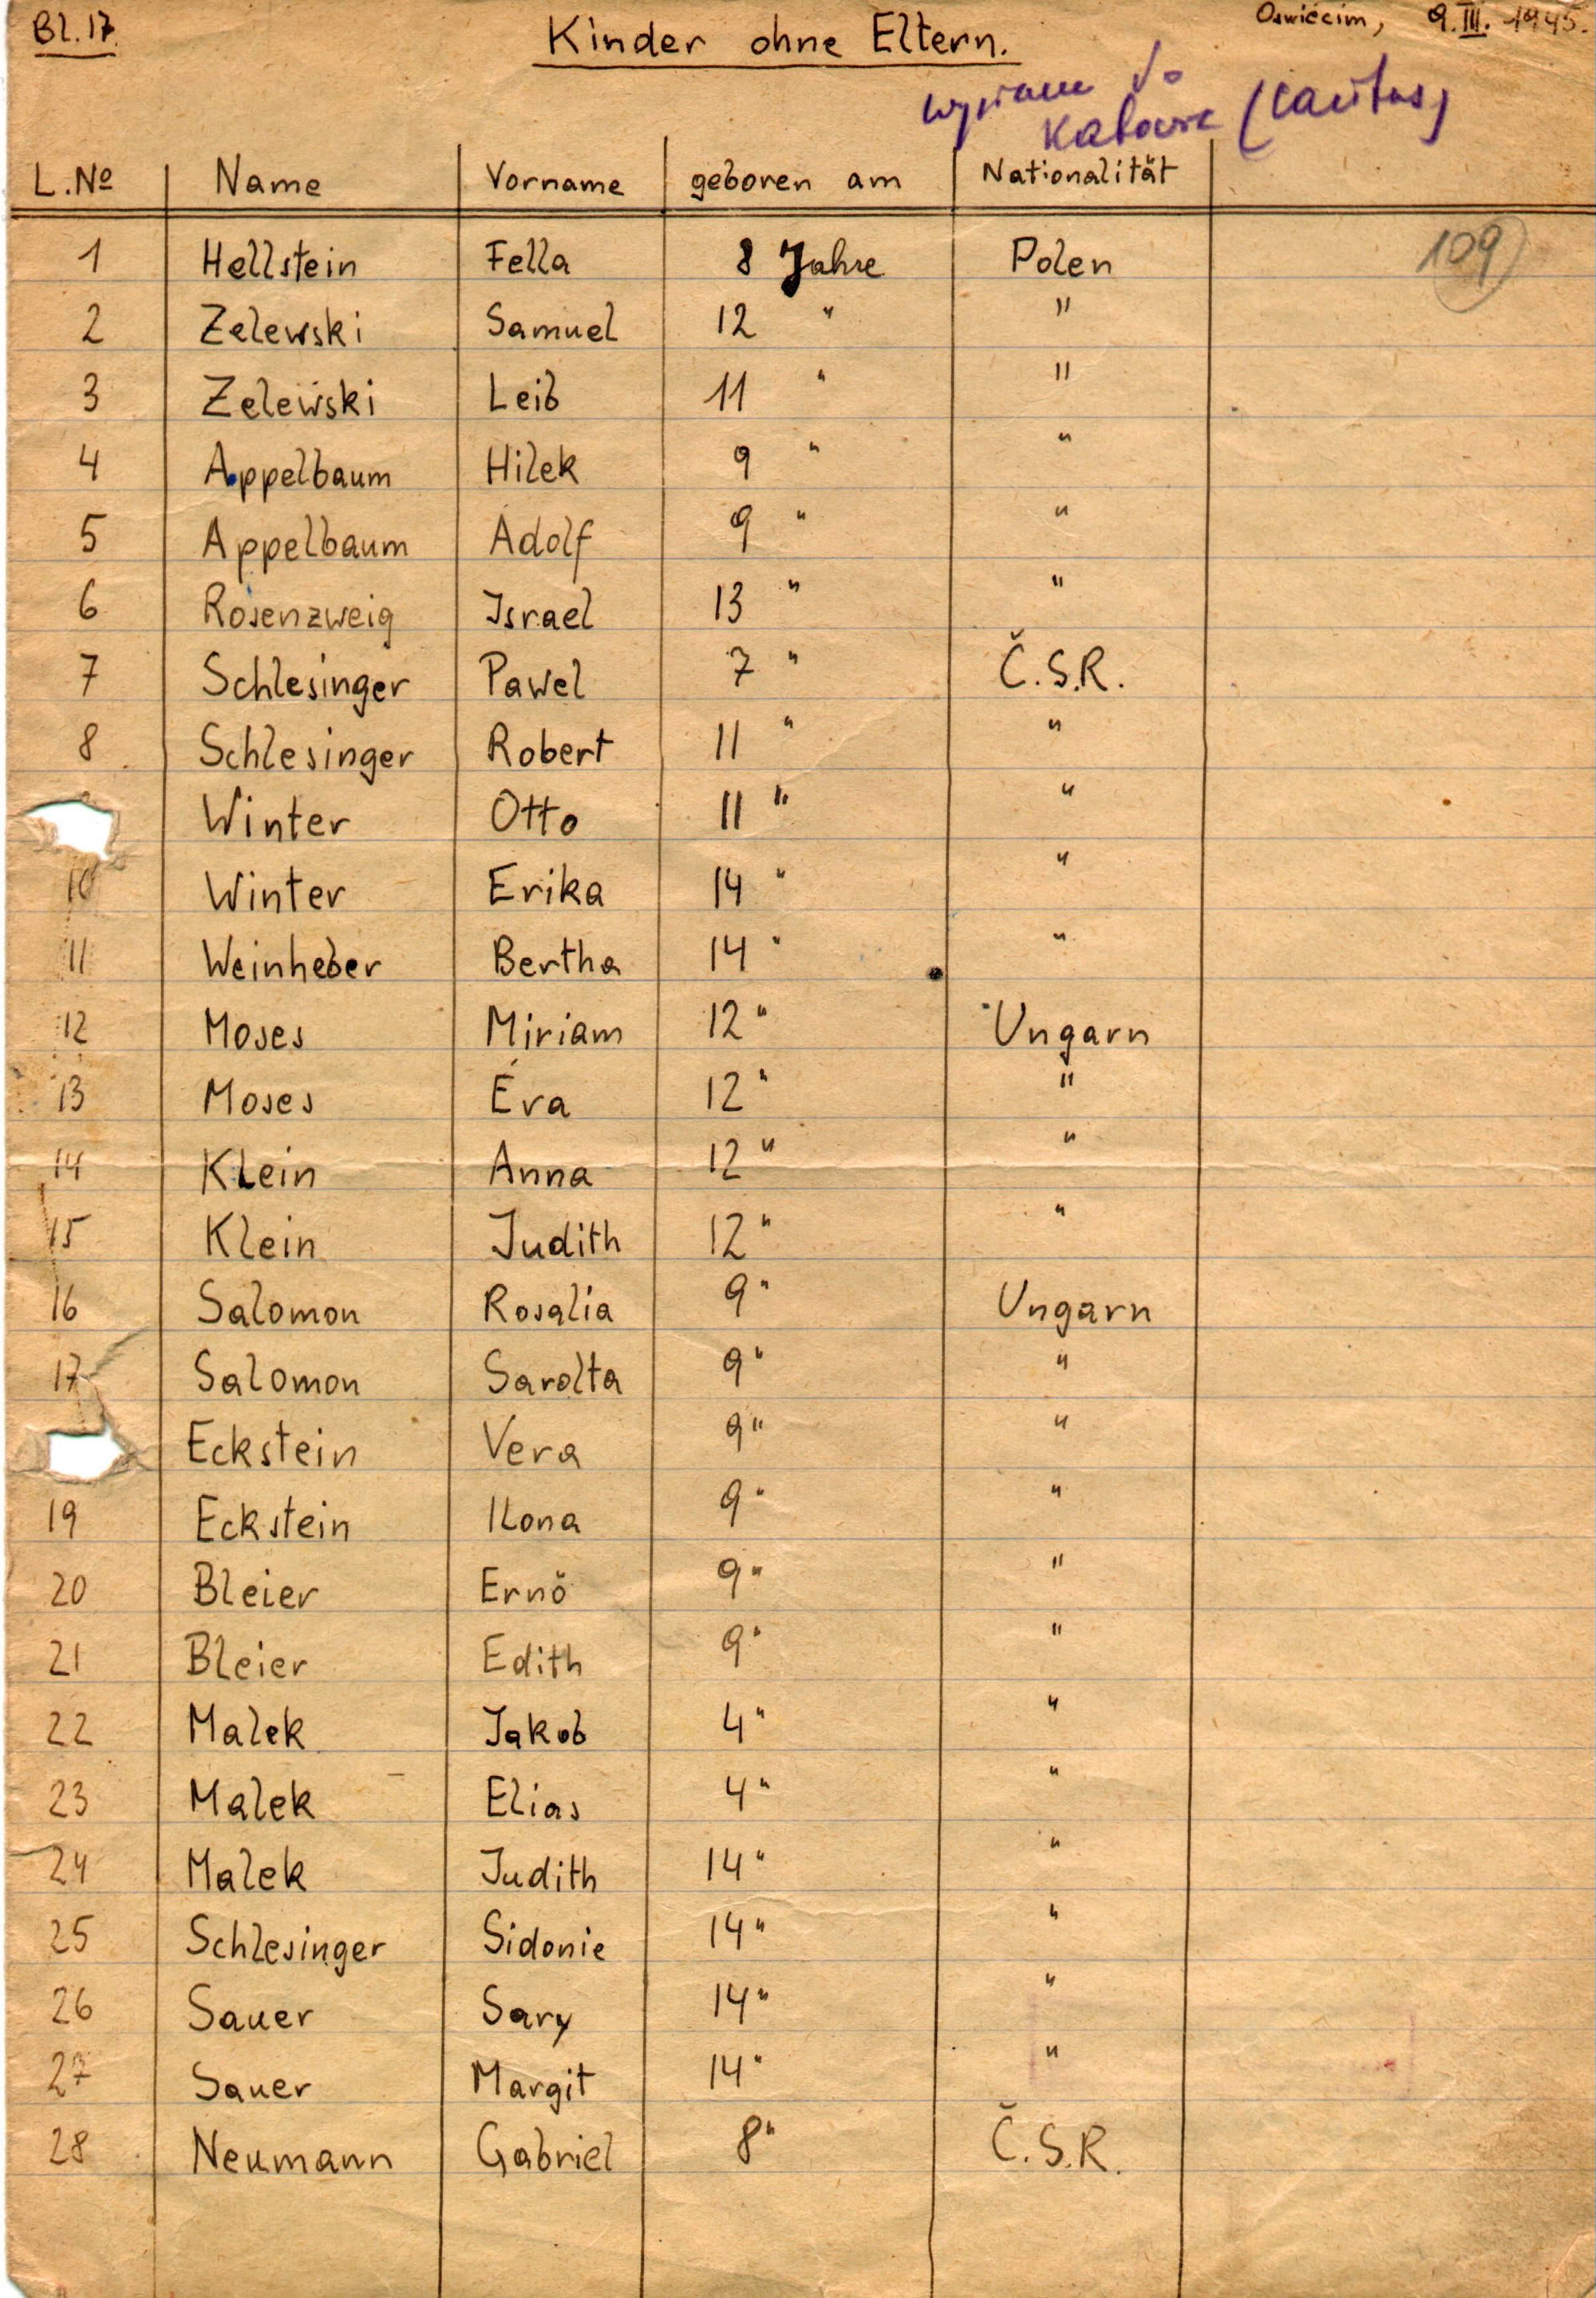 Bl. 17.
Kinder ohne Eltern.
Oswiécim, 9. III. 1945.
(Caritas)
L.No Name Vorname geboren am Nationalität
109
1 Hellstein Fella 8 Jahre Polen
2 Zelewski Samuel 12 " "
3 Zelewski Leib 11 " "
4 Appelbaum Hilek 9 " "
5 Appelbaum Adolf 9 " "
6 Rosenzweig Israel 13 " "
7 Schlesinger Pawel 7 " Č.S.R.
8 Schlesinger Robert 11 " "
Winter Otto 11 " "
10 Winter Erika 14 " "
11 Weinheber Bertha 14 " "
12 Moses Miriam 12 " Ungarn
13 Moses Éva 12 " "
14 Klein Anna 12 " "
15 Klein Judith 12 " "
16 Salomon Rosalia 9 " Ungarn
17 Salomon Sarolta 9 " "
Eckstein Vera 9 " "
19 Eckstein Ilona 9 " "
20 Bleier Ernö 9 " "
21 Bleier Edith 9 " "
22 Malek Jakob 4 " "
23 Malek Elias 4 " "
24 Malek Judith 14 " "
25 Schlesinger Sidonie 14 " "
26 Sauer Sary 14 " "
27 Sauer Margit 14 " "
28 Neumann Gabriel 8 " Č.S.R.